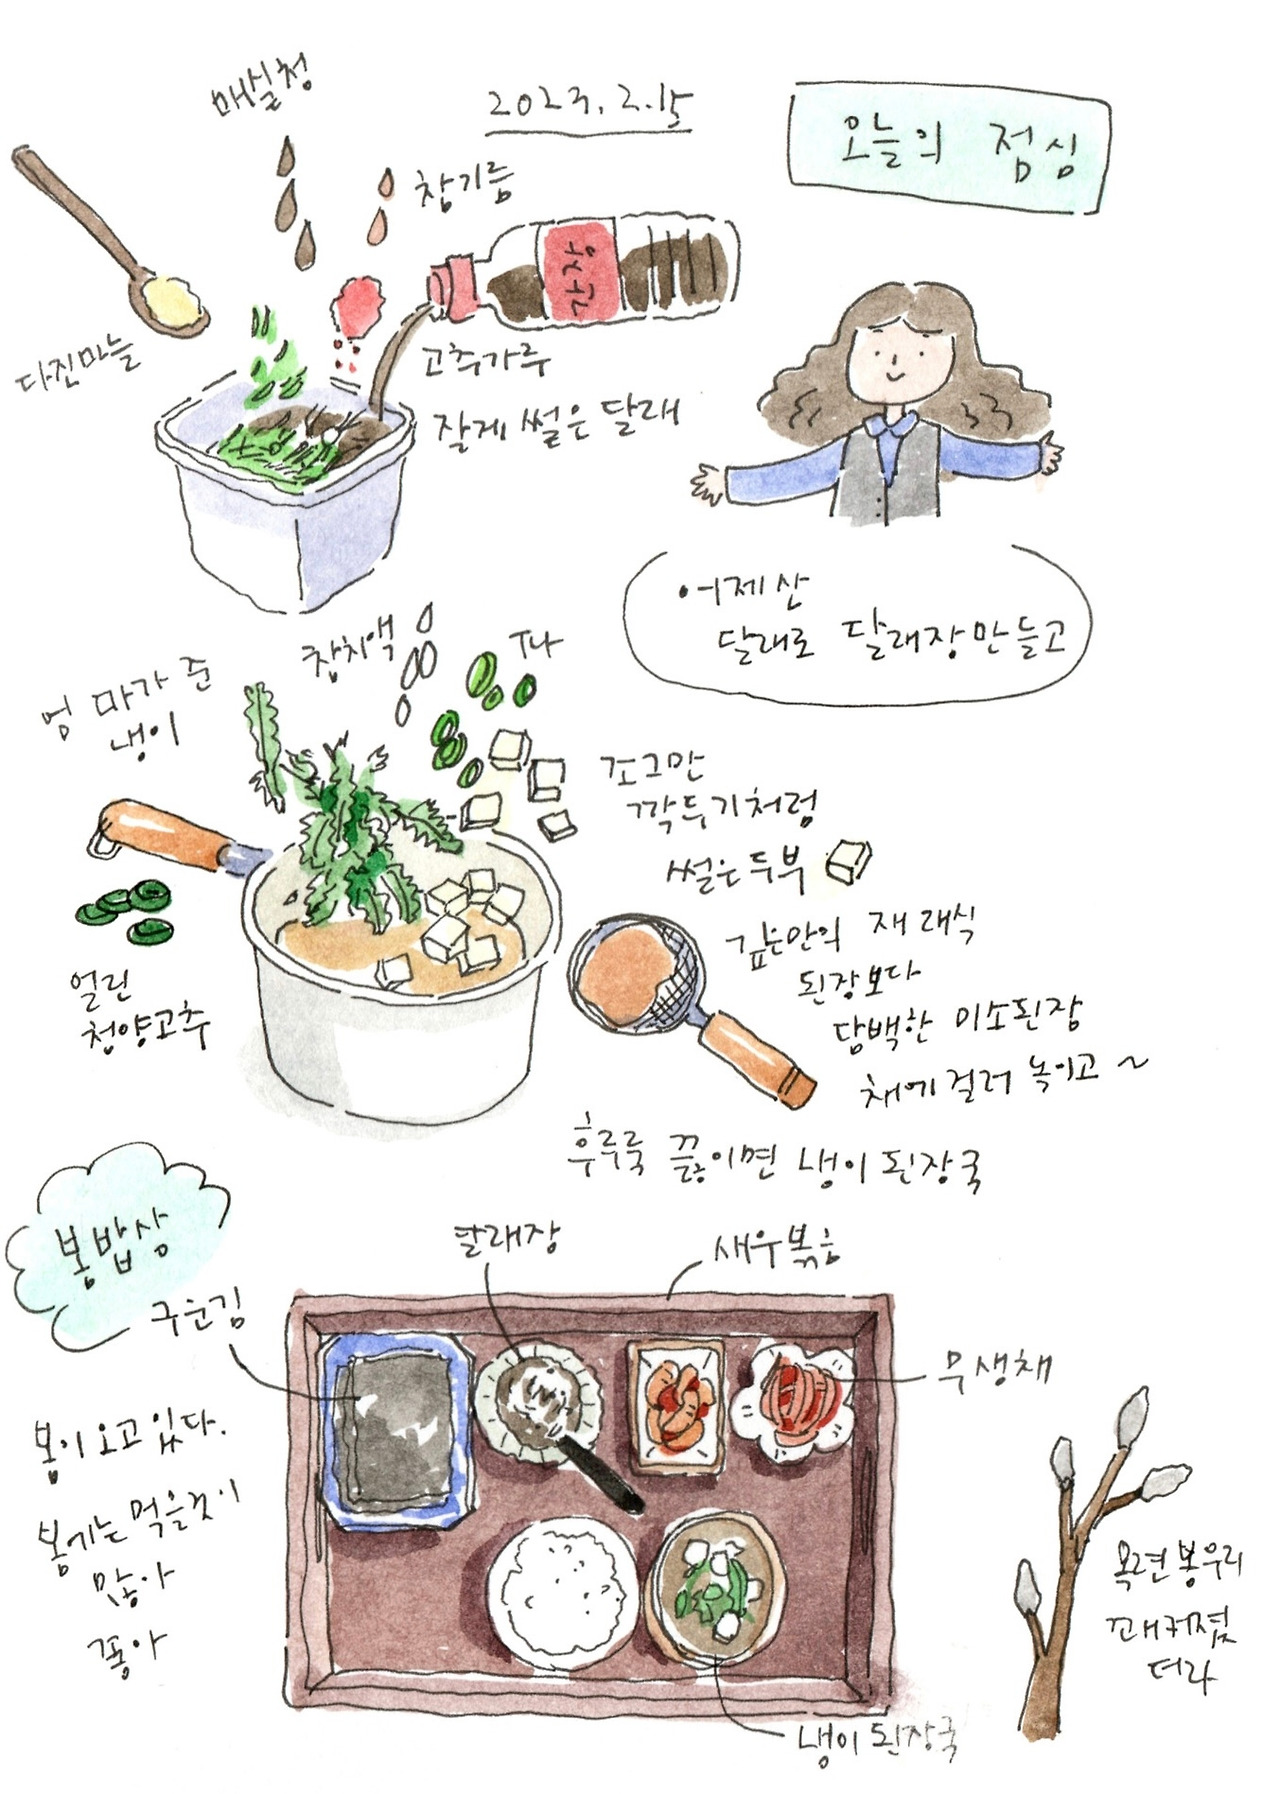 매실청
2023. 2. 15
오늘의 점심
참기름
간장
다진마늘
고추가루
잘게 썰은 달래
·어제 산
달래로 달래장 만들고
참치액
파
엉마가 준
냉이
조그만
깍두기처럼
썰은 두부
얼린
청양고추
깊은맛의 재래식
된장보다
담백한 미소된장
채에 걸러 녹이고~
후루룩 끓이면 냉이 된장국
봄밥상
구운김
달래장
새우볶음
무생채
봄이 오고 있다.
봄에는 먹을것이
많아
좋아
목련 봉우리
꽤 커졌
더라
냉이 된장국